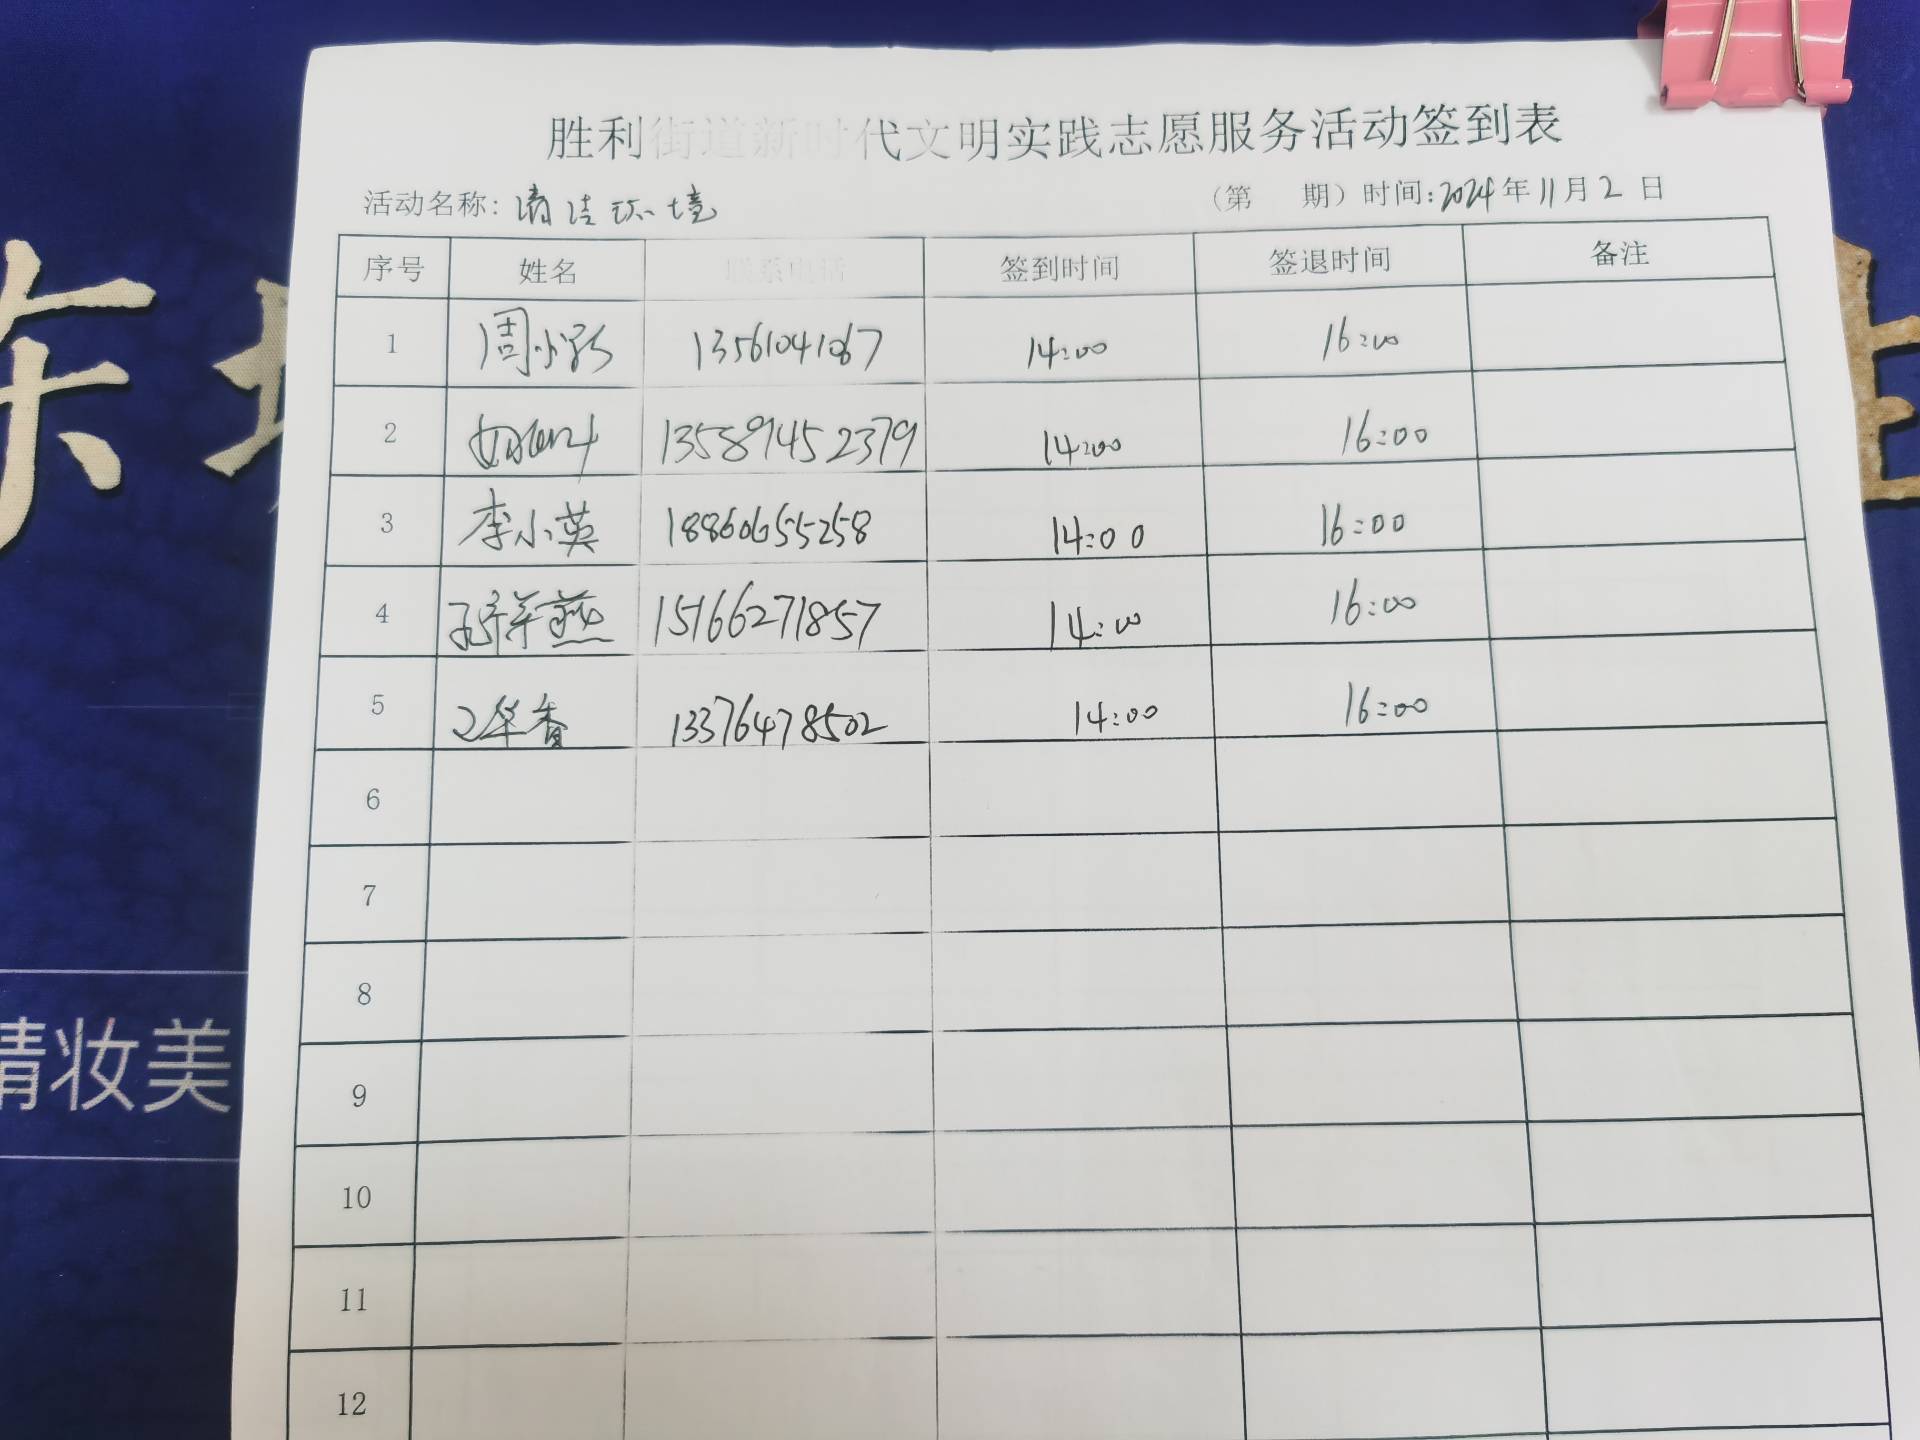 胜利街道新时代文明实践志愿服务活动签到表
活动名称：清洁环境 （第 期）时间：2024年11月2日
序号 姓名 联系电话 签到时间 签退时间 备注
1 周小 13561041067 14:00 16:00
2 13589452379 14:00 16:00
3 李小英 18860655258 14:00 16:00
4 燕 15166271857 14:00 16:00
5 华香 13376478502 14:00 16:00
6
7
8
9
10
11
12
东
生
清妆美